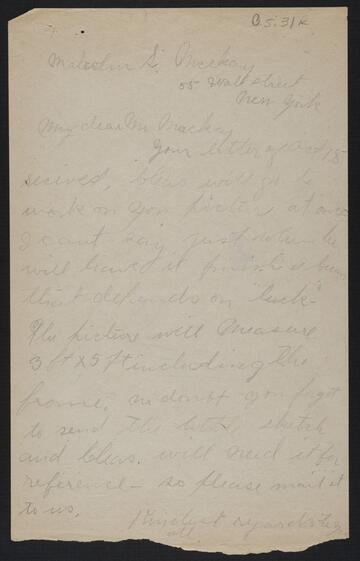 C.5.31k
Malcolm S. Mackay
55 Wall Street
New York
My dear Mr Mackay
Your letter of Oct 15
recived, Chas will go to
work on your picture at once
I cant say just when he
will have it
that depends on "luck"
The picture will measure
3 ft X 5 ft including the
frame, now dont you forget
to send the little sketch
and Chas. will need it for
reference — so please mail it
to us.
Kindest regards to you
all